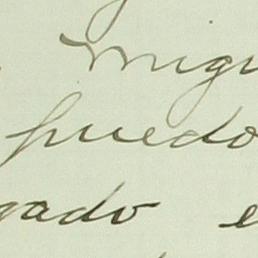 migu
puedo
gado e